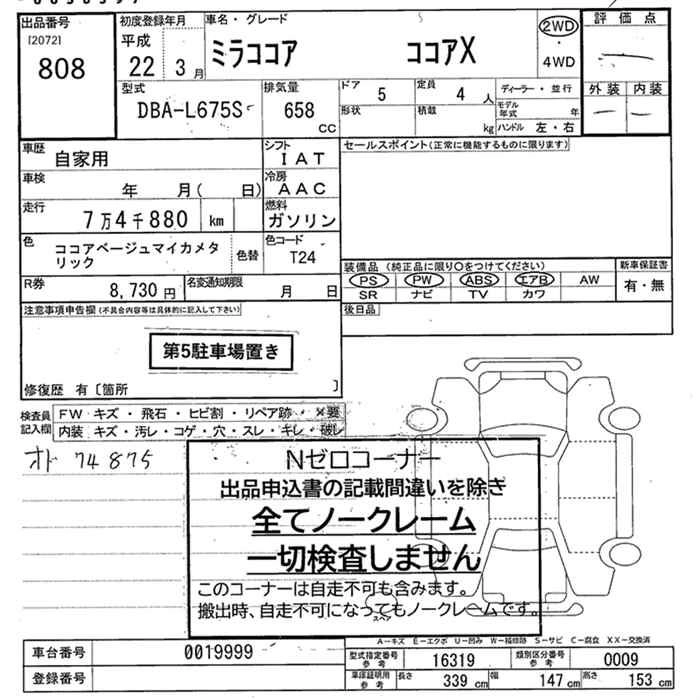 出品番号
[2072]
808
初度登録年月
平成
22 3 月
車名・グレード
ミラココア ココアX
2WD
・
4WD
評価点
外装 内装
型式
DBA-L675S
排気量
658
cc
ドア 5
定員 4 人
形状
積載 kg
ディーラー・並行
モデル年式 年
ハンドル 左・右
車歴
自家用
シフト
IAT
車検
年 月( 日)
冷房
AAC
走行
7万4千880 km
燃料
ガソリン
色
ココアベージュマイカメタ
リック
色替
色コード
T24
R券
8,730 円
名変通知期限
月 日
セールスポイント(正常に機能するものに限ります)
装備品(純正品に限り○をつけてください)
PS PW ABS エアB AW
SR ナビ TV カワ
新車保証書
有・無
後日品
注意事項申告欄(不具合内容等は具体的に記入して下さい)
第5駐車場置き
修復歴 有〔箇所 〕
検査員
記入欄
FW キズ・飛石・ヒビ割・リペア跡・×要
内装 キズ・汚レ・コゲ・穴・スレ・キレ・破レ
オド 74875
Nゼロコーナー
出品申込書の記載間違いを除き
全てノークレーム
一切検査しません
このコーナーは自走不可も含みます。
搬出時、自走不可になってもノークレームです。
スペア
A−キズ E−エクボ U−凹み W−補修跡 S−サビ C−腐食 XX−交換済
車台番号 0019999
登録番号
型式指定番号
参考
16319
類別区分番号
参考
0009
車庫証明用
参考
長さ 339 cm
幅 147 cm
高さ 153 cm